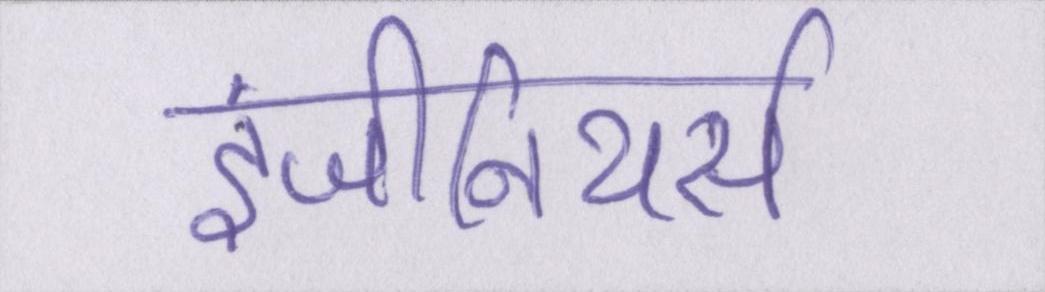 इंजीनियर्स